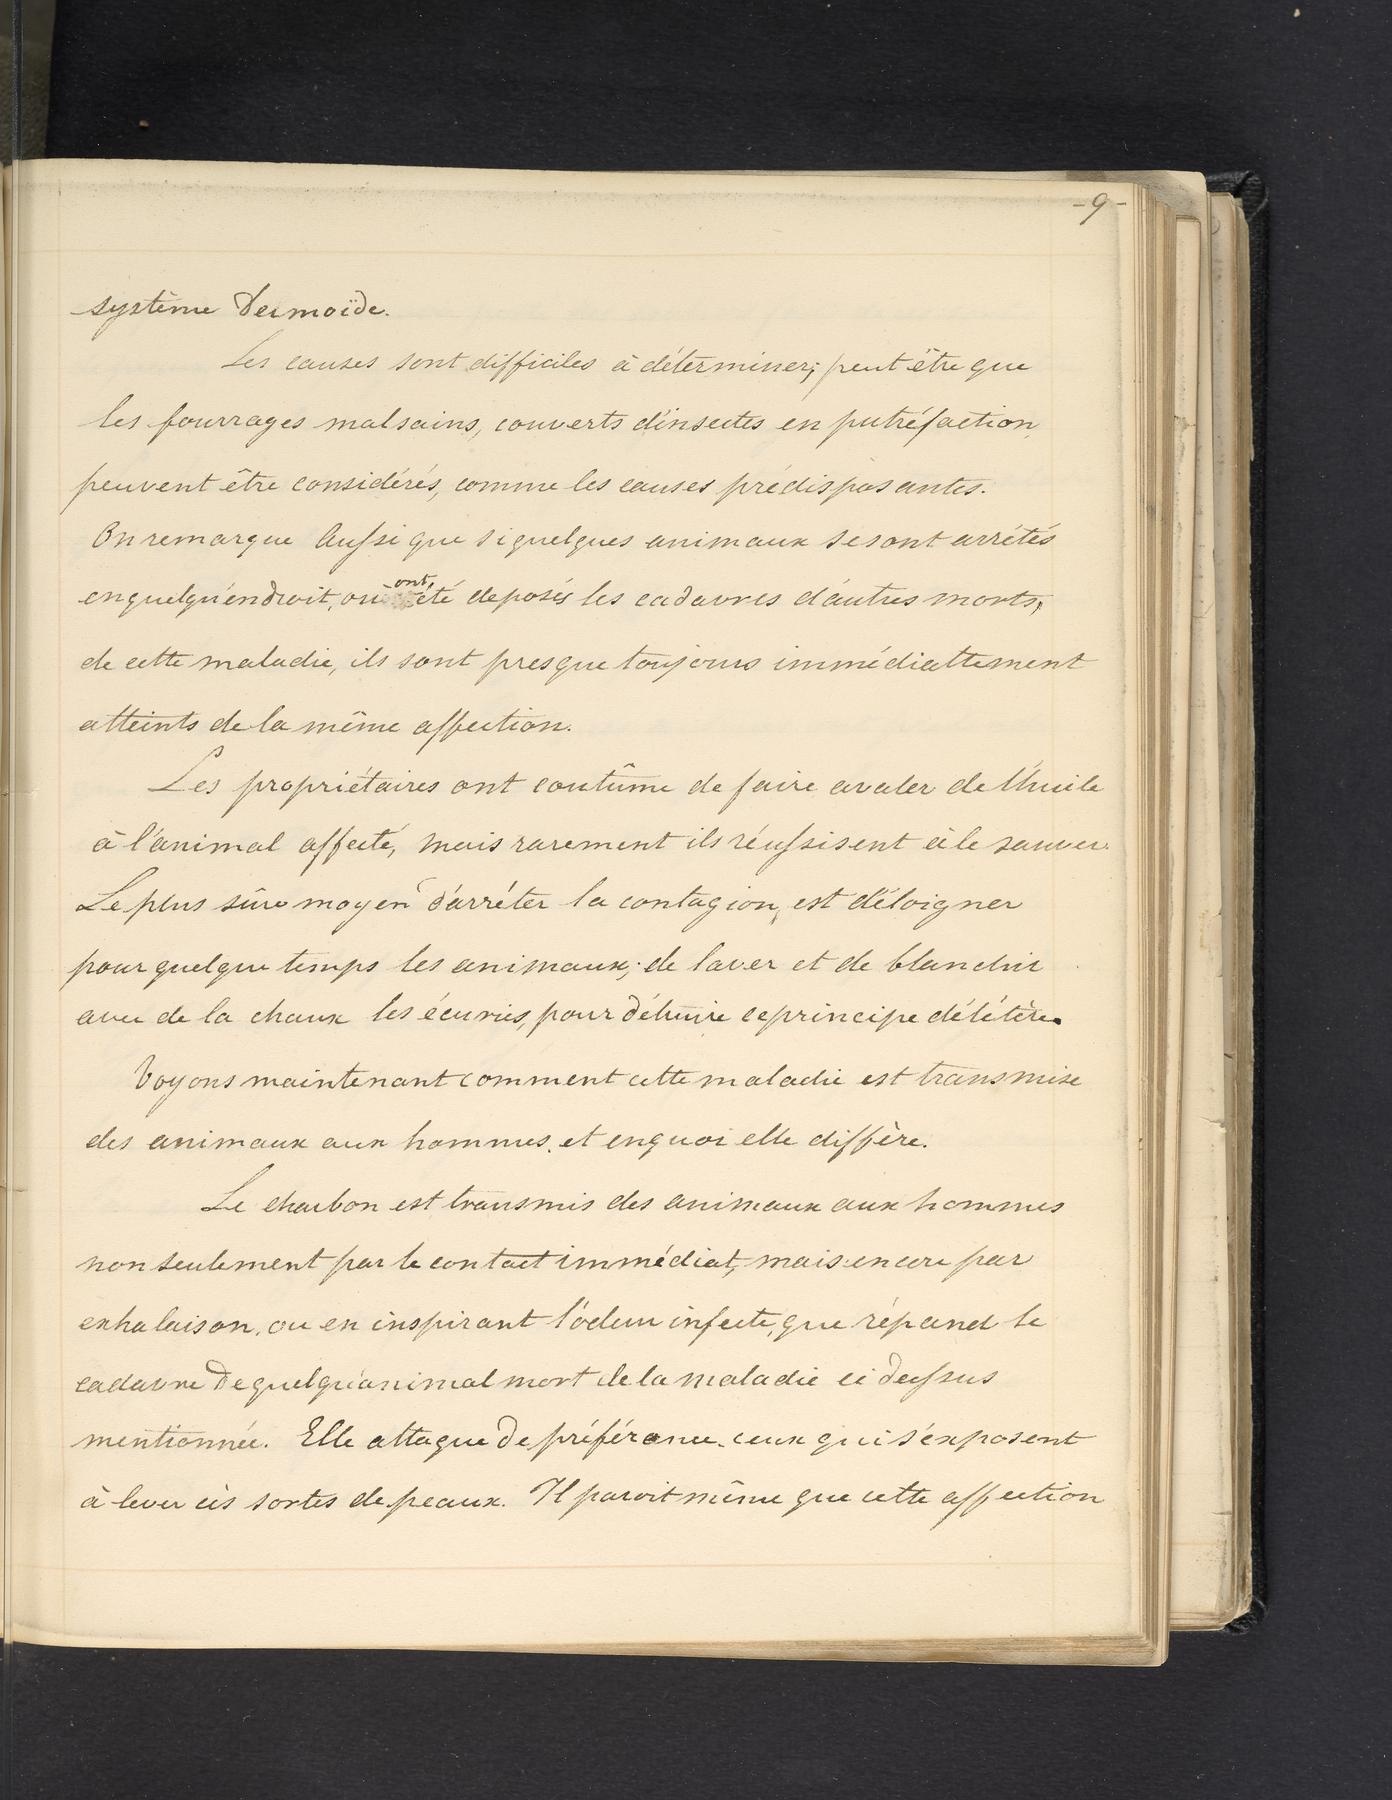 -9-
système Dermoïde.
Les causes sont difficiles à déterminer; peut être que
les fourrages malsains, couverts d'insectes en putréfaction,
peuvent être considérés, comme les causes prédisposantes.
On remarque Aussi que si quelques animaux se sont arrétés
en quelqu'endroit, où ont été deposés les cadavres d'autres morts,
de cette maladie, ils sont presque toujours immédiattement
atteints de la même affection.
Les propriétaires ont coutûme de faire avaler de l'huile
à l'animal affecté, mais rarement ils réussisent à le sauver.
Le plus sûre moyen d'arréter la contagion, est d'éloigner
pour quelque temps les animaux; de laver et de blanchir
avec de la chaux les écuries, pour détruire ce principe délétère.
Voyons maintenant comment cette maladie est transmise
des animaux aux hommes, et en quoi elle diffère.
Le charbon est transmis des animaux aux hommes
non seulement par le contact immédiat, mais encore par
exhalaison, ou en inspirant l'odeur infecte, que répand le
cadavre de quelqu'animal mort de la maladie ci dessus
mentionnée. Elle attaque de préférance, ceux qui s'exposent
à lever ces sortes de peaux. Il paroit même que cette affection